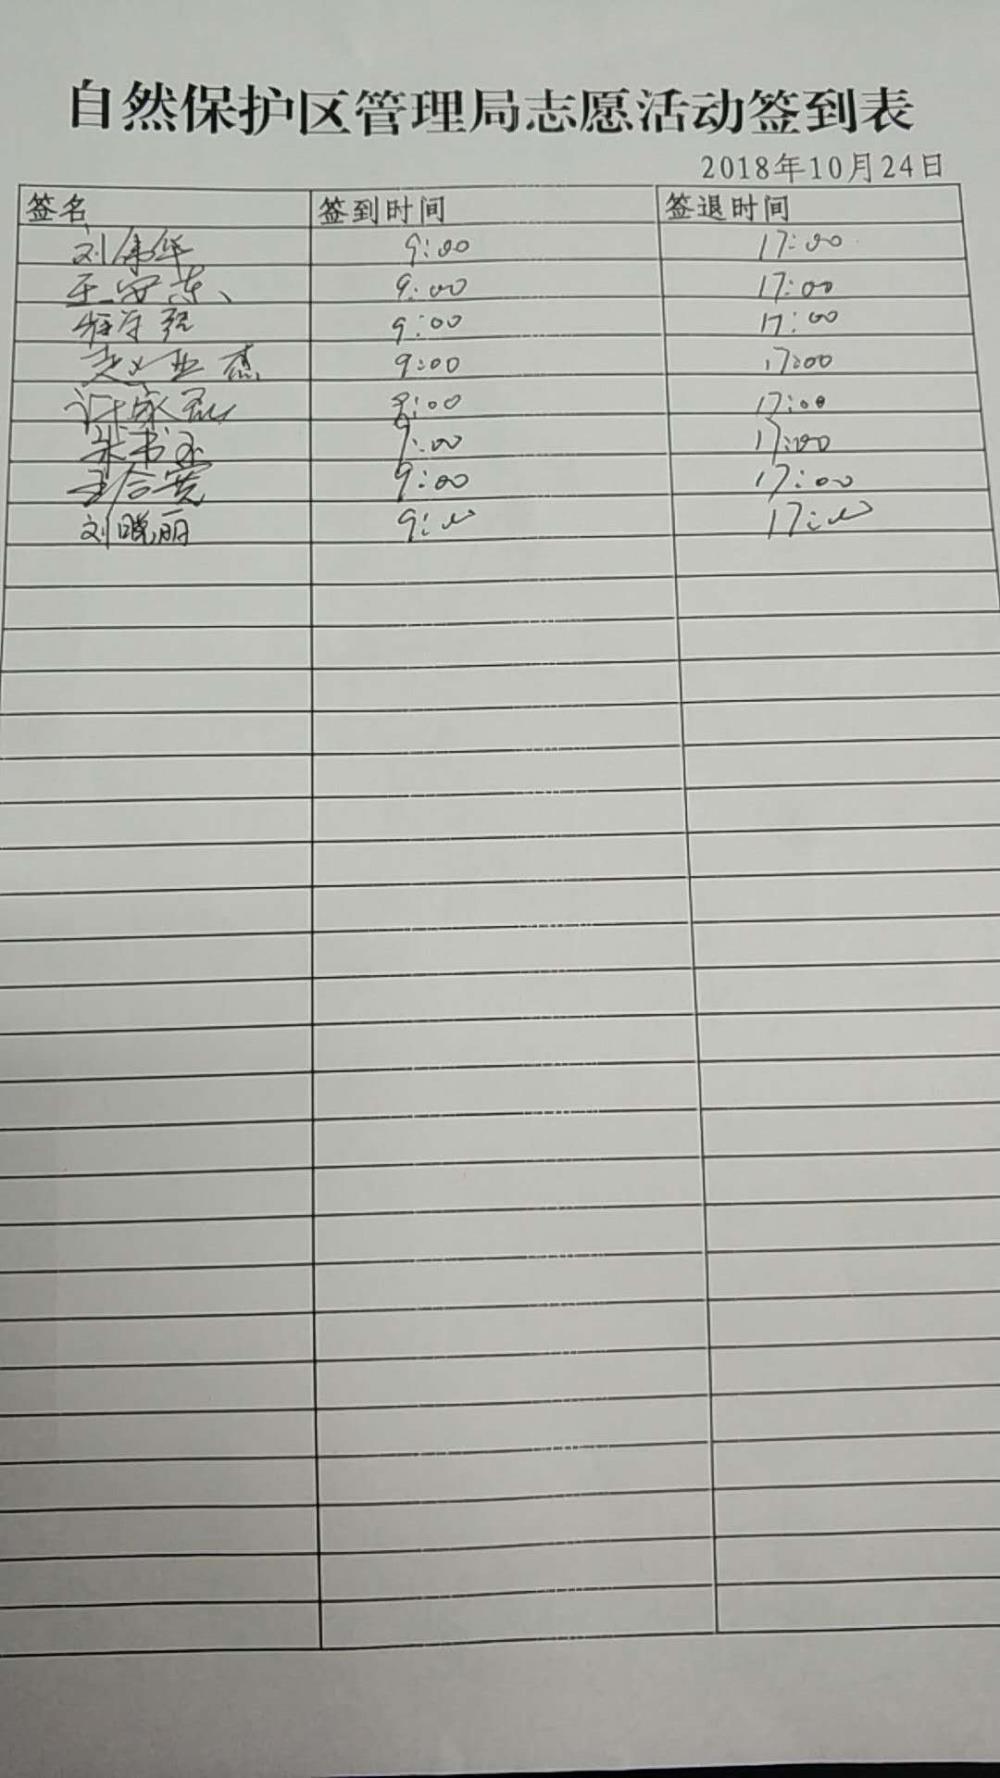 自然保护区管理局志愿活动签到表
2018年10月24日
签名 签到时间 签退时间
刘康华 9:00 17:00
王安东 9:00 17:00
9:00 17:00
赵亚杰 9:00 17:00
许家磊 9:00 17:00
朱书玉 9:00 17:00
王合宾 9:00 17:00
刘晓丽 9:00 17:00